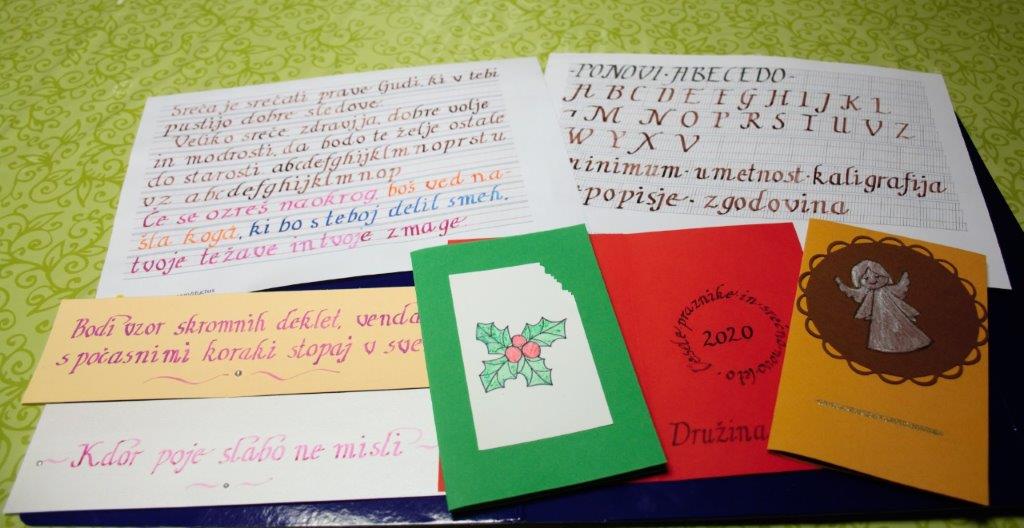 Sreča je srečati prave ljudi, ki v tebi
pustijo dobre sledove.
Veliko sreče zdravjja, dobre volje
in modrosti, da bodo te želje ostale
do starosti abcdefghijklmnoprstu
vz abcdefghijklmnop
Če se ozreš naokrog, boš ved na-
šla koga, ki bo s teboj delil smeh,
tvoje težave in tvoje zmage.
-PONOVI-ABECEDO-
A B C D E F G H I J K L
M N O P R S T U V Z
W Y X V
minimum-umetnost-kaligrafija
popisje- zgodovina
Bodi vzor skromnih deklet, venda
s počasnimi koraki stopaj v sve
Kdor poje slabo ne misli
Lesde praznike in srečno novo leto.
2020
Družina